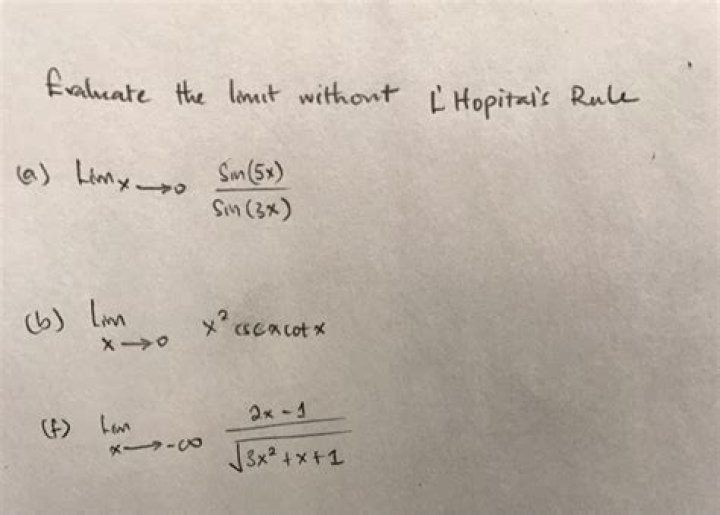 Evaluate the limit without L'Hopital's Rule
(a) Lim x→0 Sin(5x)/Sin(3x)
(b) Lim x→0 x² csc x cot x
(f) Lim x→-∞ 2x-1/√3x²+x+1